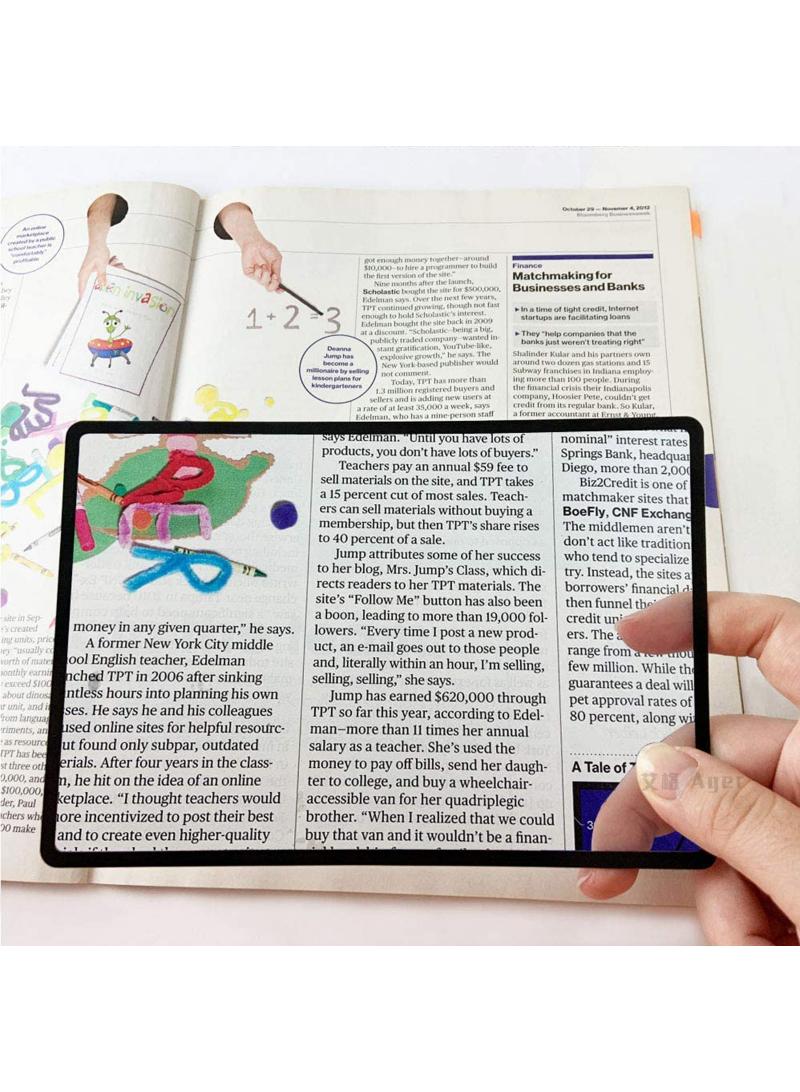 An online
marketplace
created by a public
school teacher is
"comfortably"
profitable
alien invasion
1+2=3
Deanna
Jump has
become a
millionaire by selling
lesson plans for
kindergarteners
October 29 — Novemer 4, 2012
Bloomberg Businessweek
got enough money together—around
$10,000—to hire a programmer to build
the first version of the site."
Nine months after the launch,
Scholastic bought the site for $500,000,
Edelman says. Over the next few years,
TPT continued growing, though not fast
enough to hold Scholastic's interest.
Edelman bought the site back in 2009
at a discount. "Scholastic—being a big,
publicly traded company—wanted in-
stant gratification, YouTube-like,
explosive growth," he says. The
New York-based publisher would
not comment.
Today, TPT has more than
1.3 million registered buyers and
sellers and is adding new users at
a rate of at least 35,000 a week, says
Edelman, who has a nine-person staff
Finance
Matchmaking for
Businesses and Banks
In a time of tight credit, Internet
startups are facilitating loans
They "help companies that the
banks just weren't treating right"
Shalinder Kular and his partners own
around two dozen gas stations and 15
Subway franchises in Indiana employ-
ing more than 100 people. During
the financial crisis their Indianapolis
company, Hoosier Pete, couldn't get
credit from its regular bank. So Kular,
a former accountant at Ernst & Young,
money in any given quarter," he says.
A former New York City middle
ool English teacher, Edelman
nched TPT in 2006 after sinking
ntless hours into planning his own
ses. He says he and his colleagues
used online sites for helpful resourc-
ut found only subpar, outdated
erials. After four years in the class-
m, he hit on the idea of an online
ketplace. "I thought teachers would
ore incentivized to post their best
and to create even higher-quality
says Edelman. "Until you have lots of
products, you don't have lots of buyers."
Teachers pay an annual $59 fee to
sell materials on the site, and TPT takes
a 15 percent cut of most sales. Teach-
ers can sell materials without buying a
membership, but then TPT's share rises
to 40 percent of a sale.
Jump attributes some of her success
to her blog, Mrs. Jump's Class, which di-
rects readers to her TPT materials. The
site's "Follow Me" button has also been
a boon, leading to more than 19,000 fol-
lowers. "Every time I post a new prod-
uct, an e-mail goes out to those people
and, literally within an hour, I'm selling,
selling, selling," she says.
Jump has earned $620,000 through
TPT so far this year, according to Edel-
man—more than 11 times her annual
salary as a teacher. She's used the
money to pay off bills, send her daugh-
ter to college, and buy a wheelchair-
accessible van for her quadriplegic
brother. "When I realized that we could
buy that van and it wouldn't be a finan-
nominal" interest rates
Springs Bank, headquar
Diego, more than 2,000
Biz2Credit is one of
matchmaker sites that
BoeFly, CNF Exchang
The middlemen aren't
don't act like tradition
who tend to specialize
try. Instead, the sites a
borrowers' financial d
then funnel the
credit uni
ers. The a
range from a few thou
few million. While the
guarantees a deal will
pet approval rates of
80 percent, along wi
A Tale of T
艾格 Ager